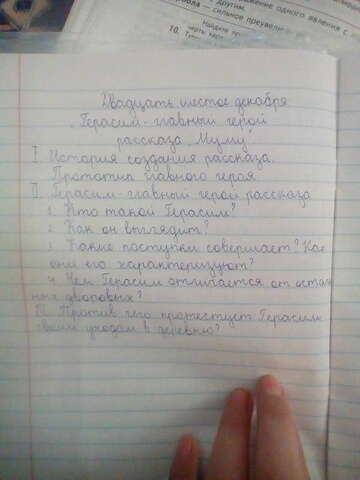 другим
рбола — сильное преувели
ражение одного явления с
10.
Найдите
черты
Двадцать шестое декабря
"Герасим - главный герой
рассказа "Муму"
I. История создания рассказа.
Прототип главного героя.
II. Герасим - главный герой рассказа
1. Кто такой Герасим?
2. Как он выглядит?
3. Какие поступки совершает? Как
они его характеризуют?
4. Чем Герасим отличается от осталь
ных дворовых?
III. Против чего протестует Герасим
своим уходом в деревню?